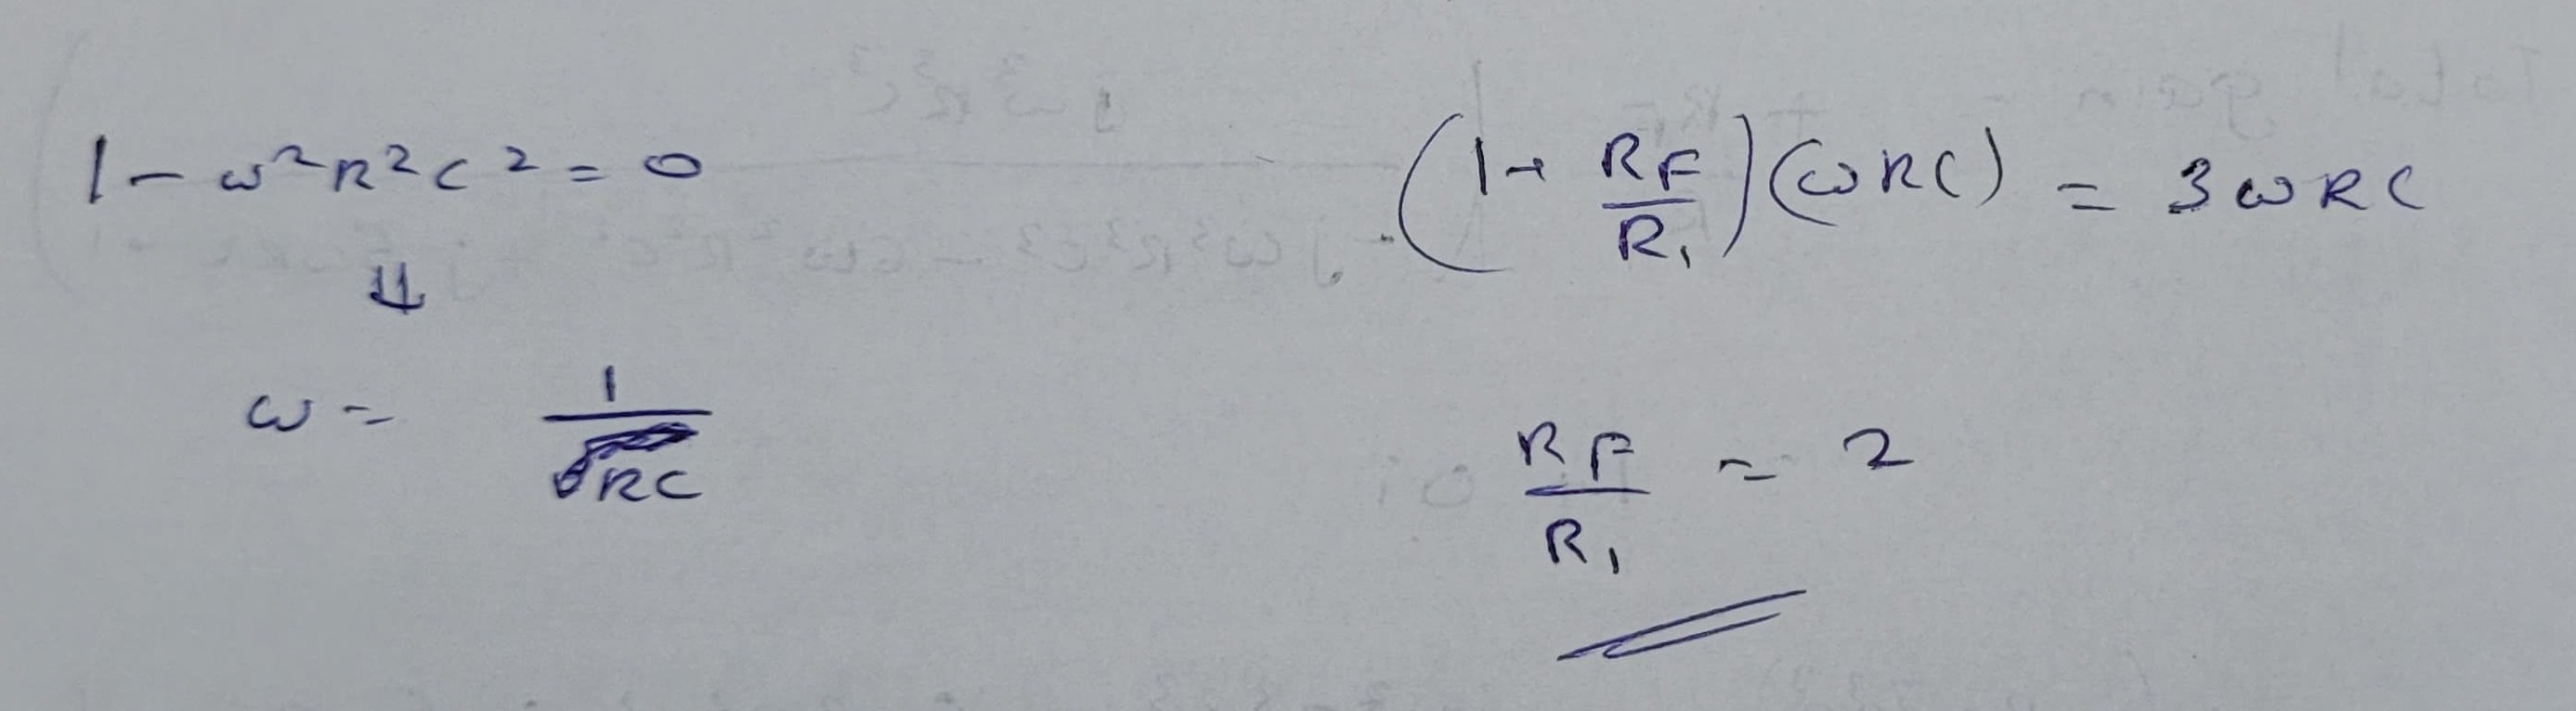 1 - ω²R²C² = 0
⇓
ω = 1/RC
(1 + RF/R₁)(ωRC) = 3ωRC
RF/R₁ = 2